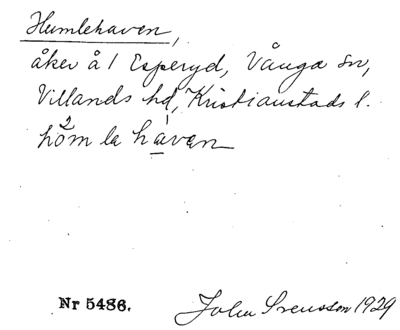 Humlehaven,
åker å 1 Esperyd, Vånga sn,
Villands hd, Kristianstads l.
hömlehavan
Nr 5486. John Svensson 1929